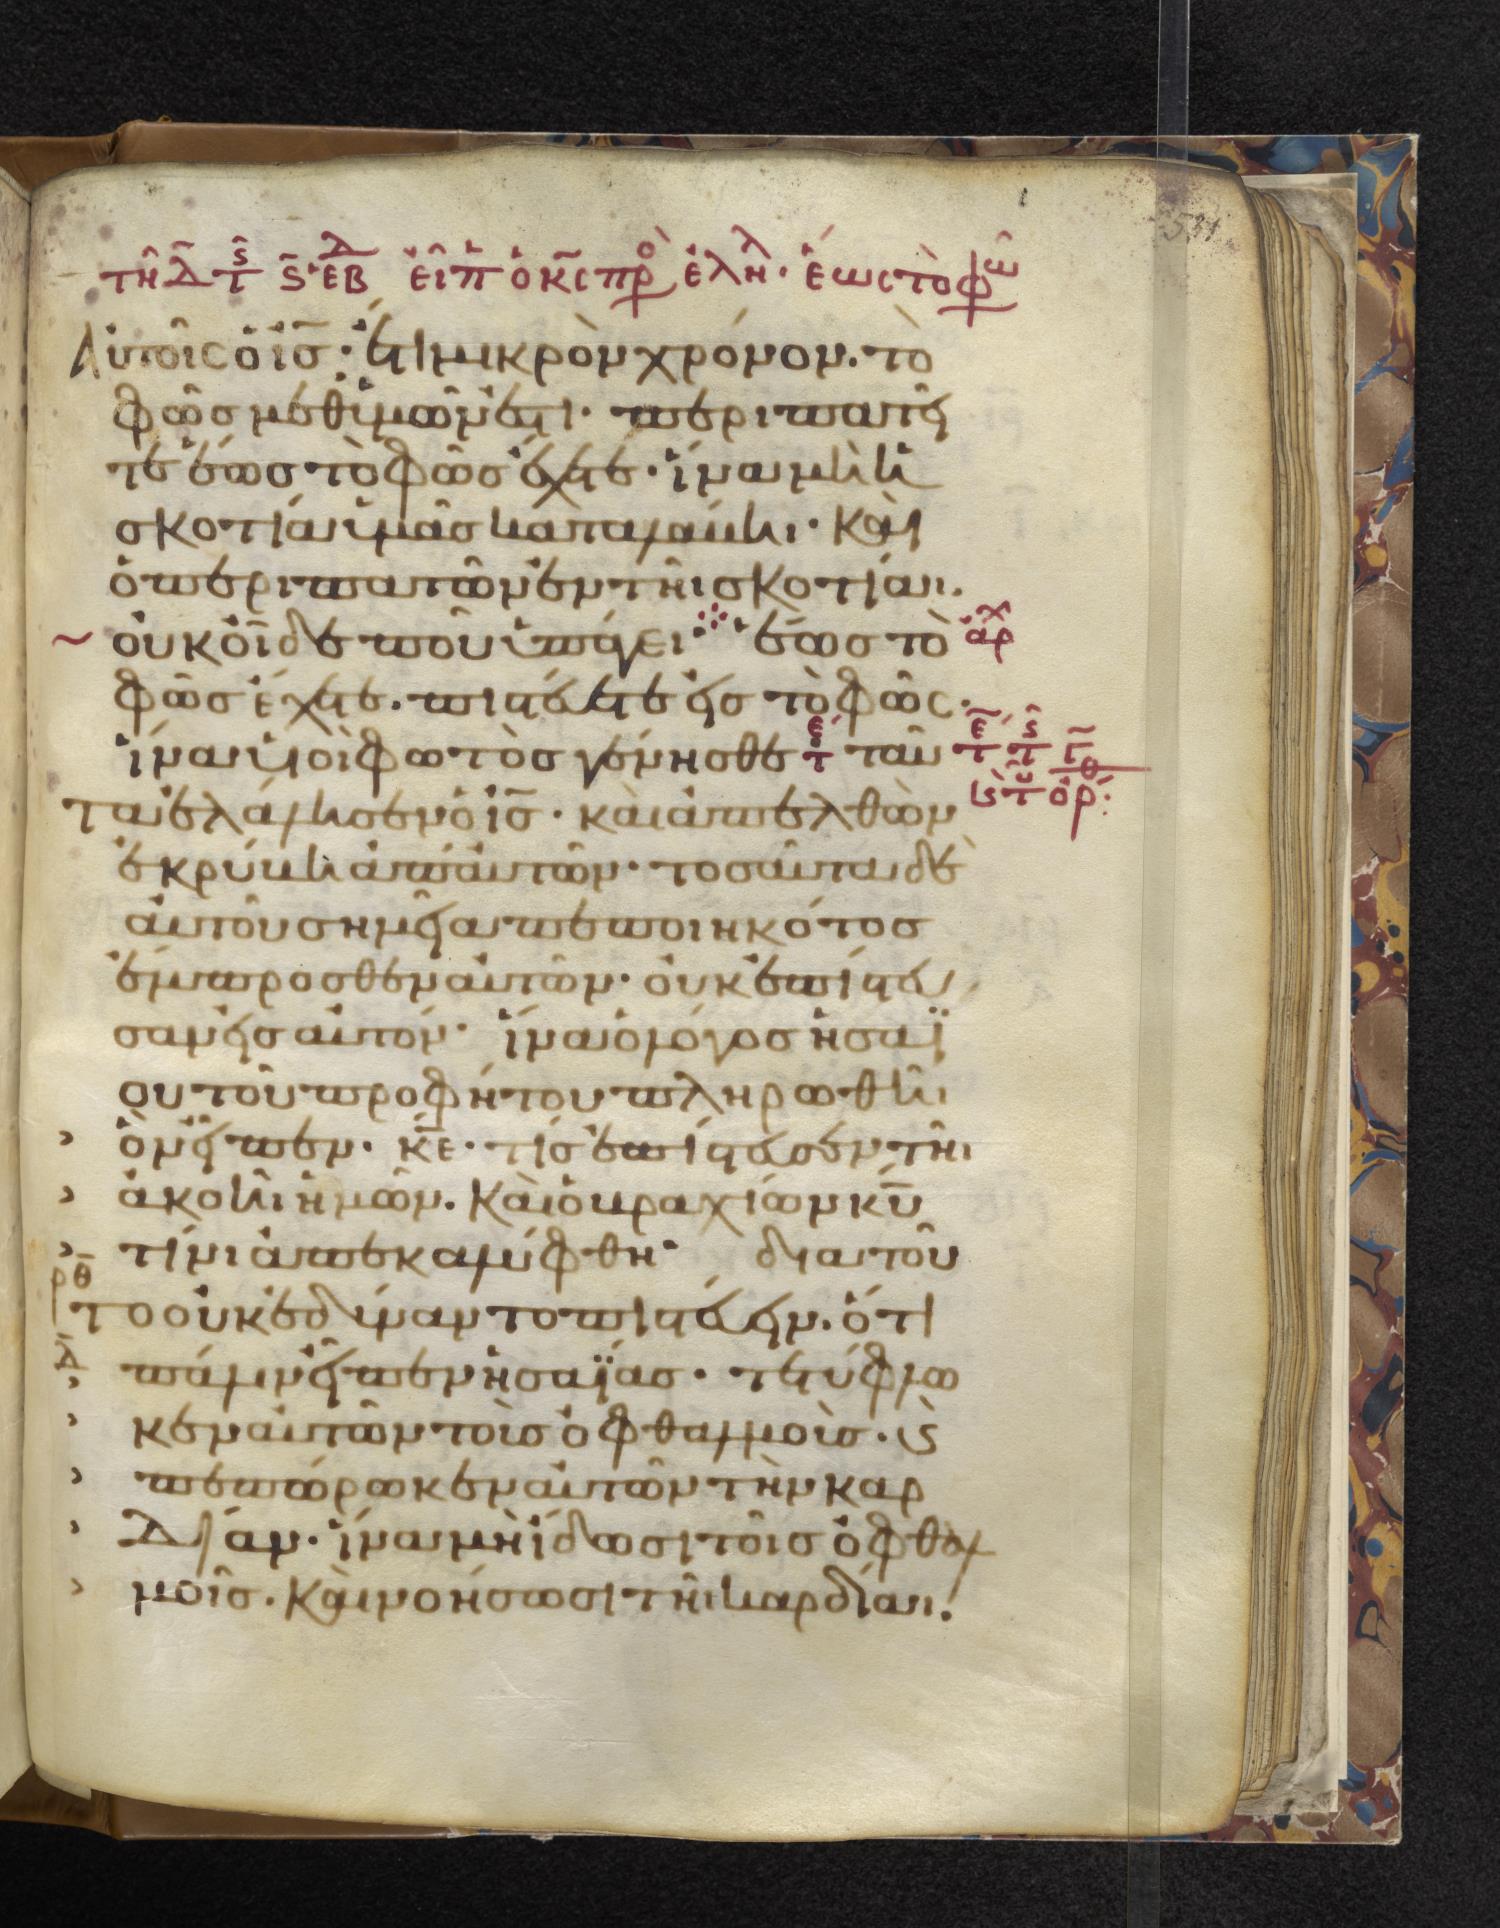 τῆ Δ τ ς ς ἑβδ εἶπ ὁ κς πρὸ ἐληλ· ἕως τὸ φῶ
Αὐτοῖς ὁ ισ· ἔτι μικρὸν χρόνον. τὸ
φῶσ μεθ ἡμῶν ἐστι· περιπατεῖ
τε ἕωσ τὸ φῶσ ἔχετε· ἵνα μὴ ἡ
σκοτία ὑμᾶσ καταλάβηι· καὶ
ὁ περιπατῶν ἐν τῆι σκοτίαι.
οὐκ οἶδε ποῦ ὑπάγει· ἕωσ τὸ ἀρχ
φῶσ ἔχετε. πιστεύετε εἰσ τὸ φῶς.
ἵνα υἱοὶ φωτὸσ γένησθε τε ταῦ
τα ἐλάλησεν ὁ ισ· καὶ ἀπελθὼν
ἐκρύβη ἀπ' αὐτῶν· τοσαῦτα δὲ
αὐτοῦ σημεῖα πεποιηκότοσ
ἔμπροσθεν αὐτῶν· οὐκ ἐπίστευ
σαν εἰσ αὐτόν· ἵνα ὁ λόγοσ ἠσαΐ
ου τοῦ προφήτου πληρωθῆι
ὃν εἶπεν· κε· τίσ ἐπίστευσεν τῆι
ἀκοῆι ἡμῶν. καὶ ὁ βραχίων κυ
τίνι ἀπεκαλύφθη· διατοῦ
ρθ
το οὐκ ἐδύναντο πιστεύειν. ὅτι
Δ
πάλιν εἶπεν ἠσαΐασ· τετύφλω
κεν αὐτῶν τοὺσ ὀφθαλμοὺσ· ϗ
πεπώρωκεν αὐτῶν τὴν καρ
δίαν· ἵνα μὴ ἴδωσι τοῖσ ὀφθαλ
μοῖσ. καὶ νοήσωσι τῆι καρδίαι.